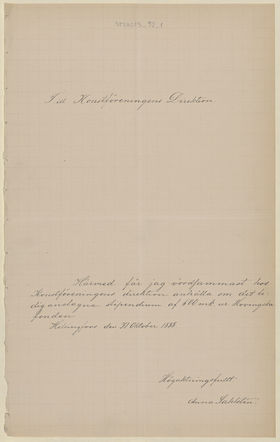 Till Konstföreningens Direktion
Härmed får jag vördsammast hos
Konstföreningens direktion anhålla om det le-
diganslagna stipendium af 600 mk ur Hovingska
fonden
Helsingfors den 31 Oktober 1888
Högaktningsfullt
Anna Sahlstén